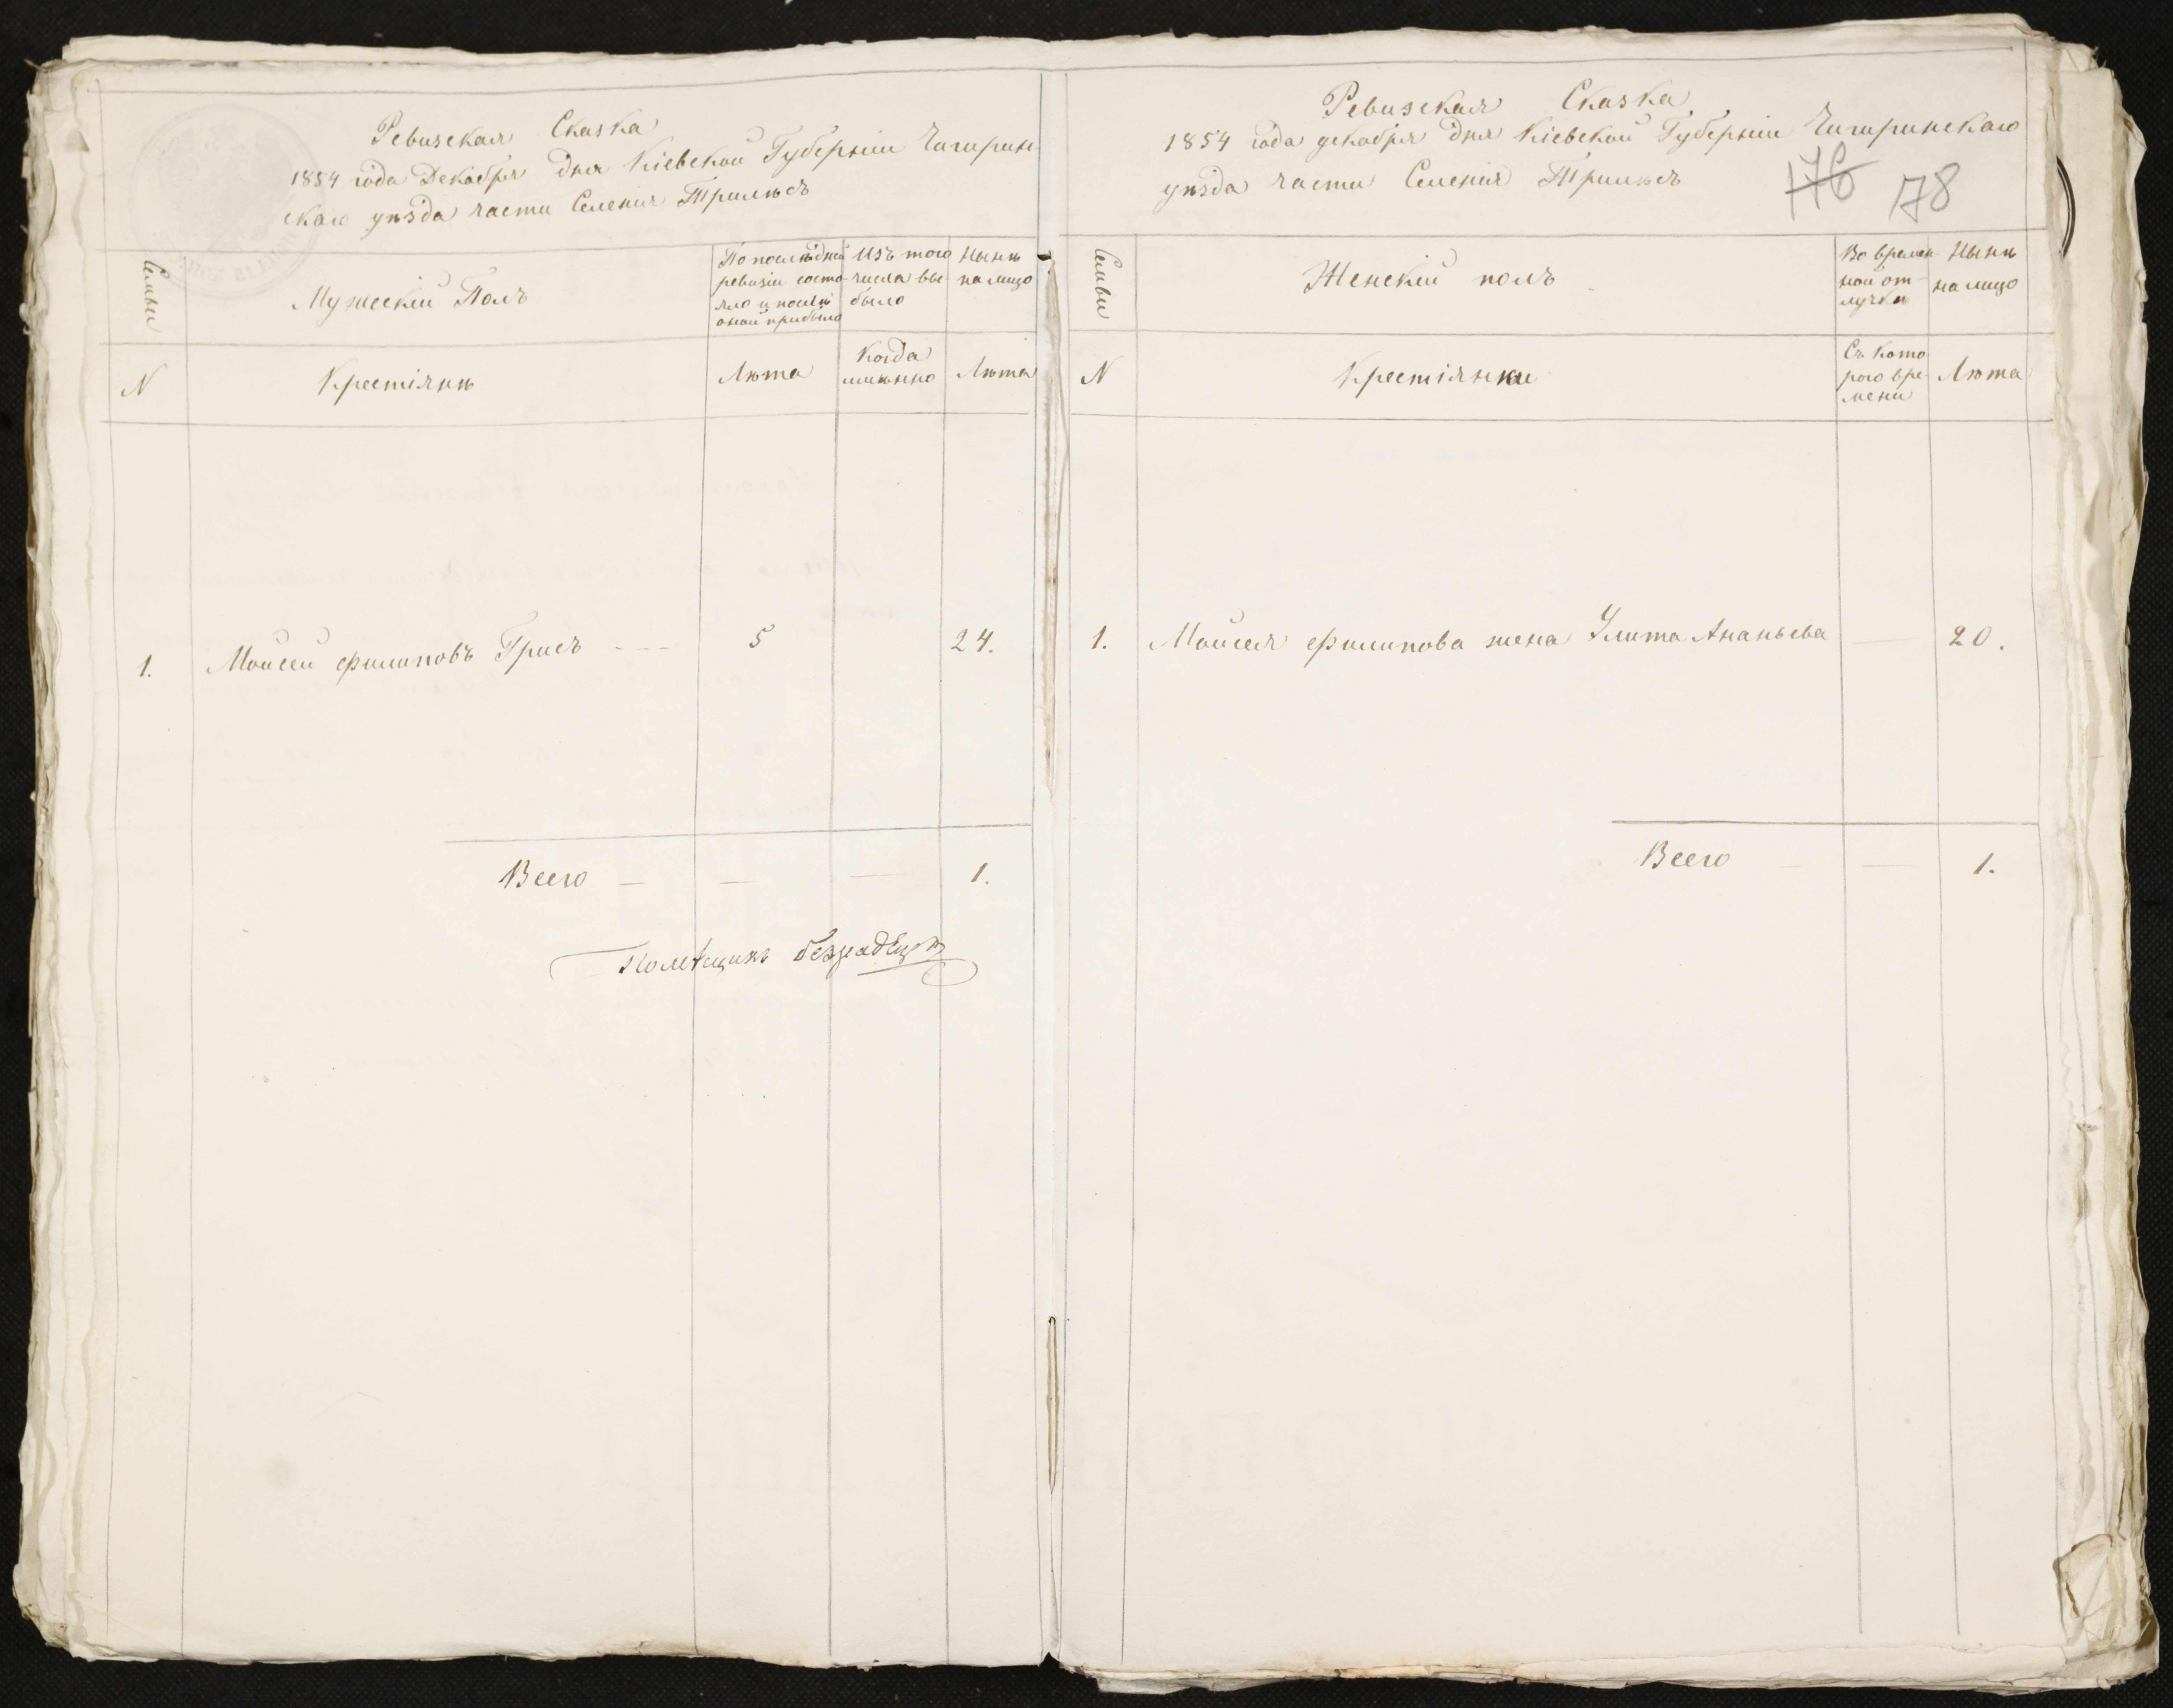 Ревизская Сказка
1854 года Декабря дня Кіевской Губерніи Чигирин
скаго уѣзда части Селенія Трилѣсъ
Семьи
Мужескій Полъ
По послѣдней
ревизіи состо-
яло и послѣ
оной прибыло
Изъ того
числа вы-
было
Нынѣ
на лицо
N
Крестіяни
Лѣта
Когда
имѣнно
Лѣта
1.
Мойсей Филиповъ Грисъ - - -
5
24.
Всего — — — 1.
Помѣщикъ
Ревизская Сказка.
1854 года декабря дня Кіевской Губерніи Чигиринскаго
уѣзда части Селенія Трилѣсъ
176 178
Семьи
Женскій полъ
Во времен-
ной от-
лучкѣ
Нынѣ
на лицо
N
Крестіянки
Съ кото
рого вре-
мени
Лѣта
1. Мойсея Филипова жена Улита Ананьева — 20.
Всего — — 1.